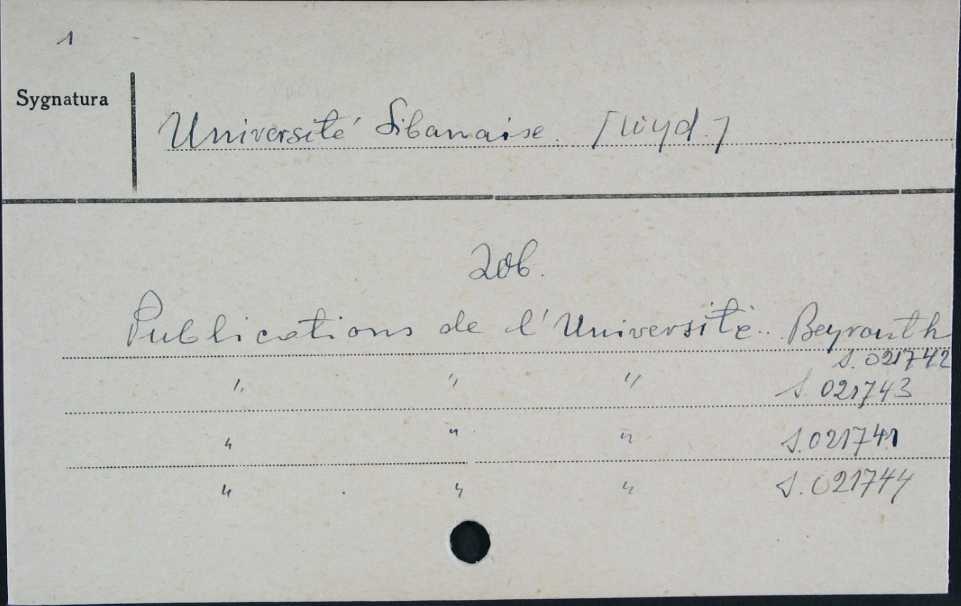 1
Sygnatura
Université Libanaise. [wyd.]
Zob.
Publications de l'Université.. Beyrouth
S. 021742
" " " S. 021743
" " " S. 021741
" " " S. 021744